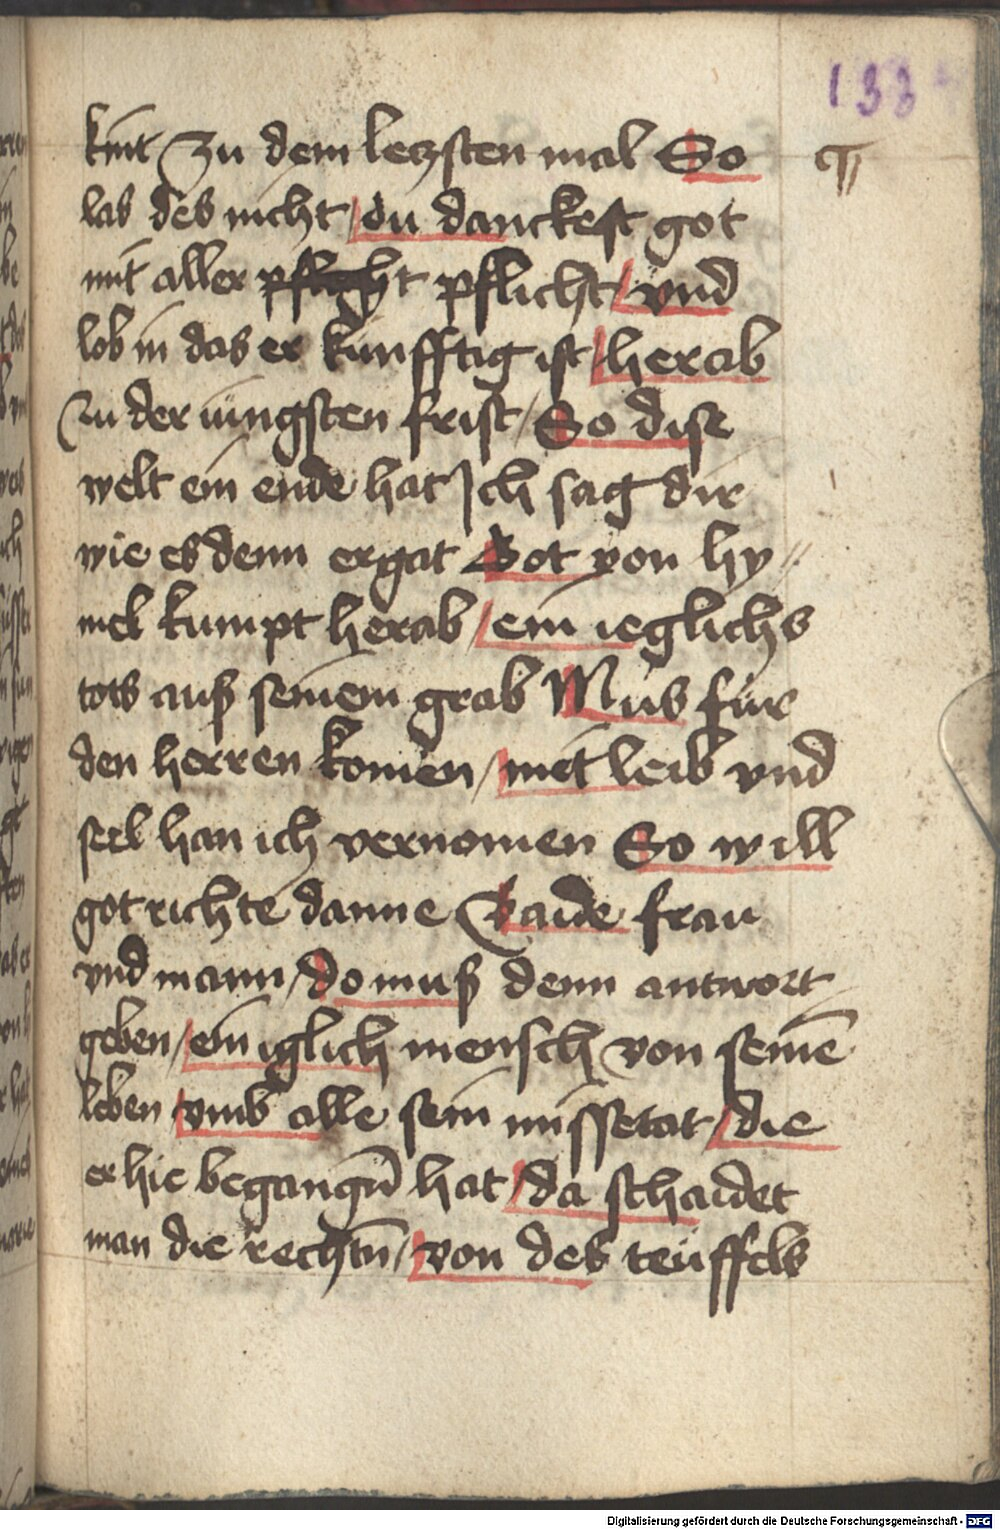 133
kint Zu dem leczsten mal So
las des nicht / du danckest got
mit aller pflicht / vnd
lob in das er künfftig ist / herab
Zu der iüngsten frist / So dise
welt ein ende hat Ich sag dir
wie es denn ergat Got von hy〃
mel kumpt herab / ein ieglichs
tots auß seinem grab Mus für
den herren komen / mit leib vnd
sel han ich vernomen So will
got richte danne Baide frau
vnd mann / do muß denn antwort
geben / ein iglich mensch von seinē
leben vmb alle sein missetat / die
er hie begangn̄ hat / da schaidet
man die rechtn̄ / von des teüffels
Digitalisierung gefördert durch die Deutsche Forschungsgemeinschaft - DFG